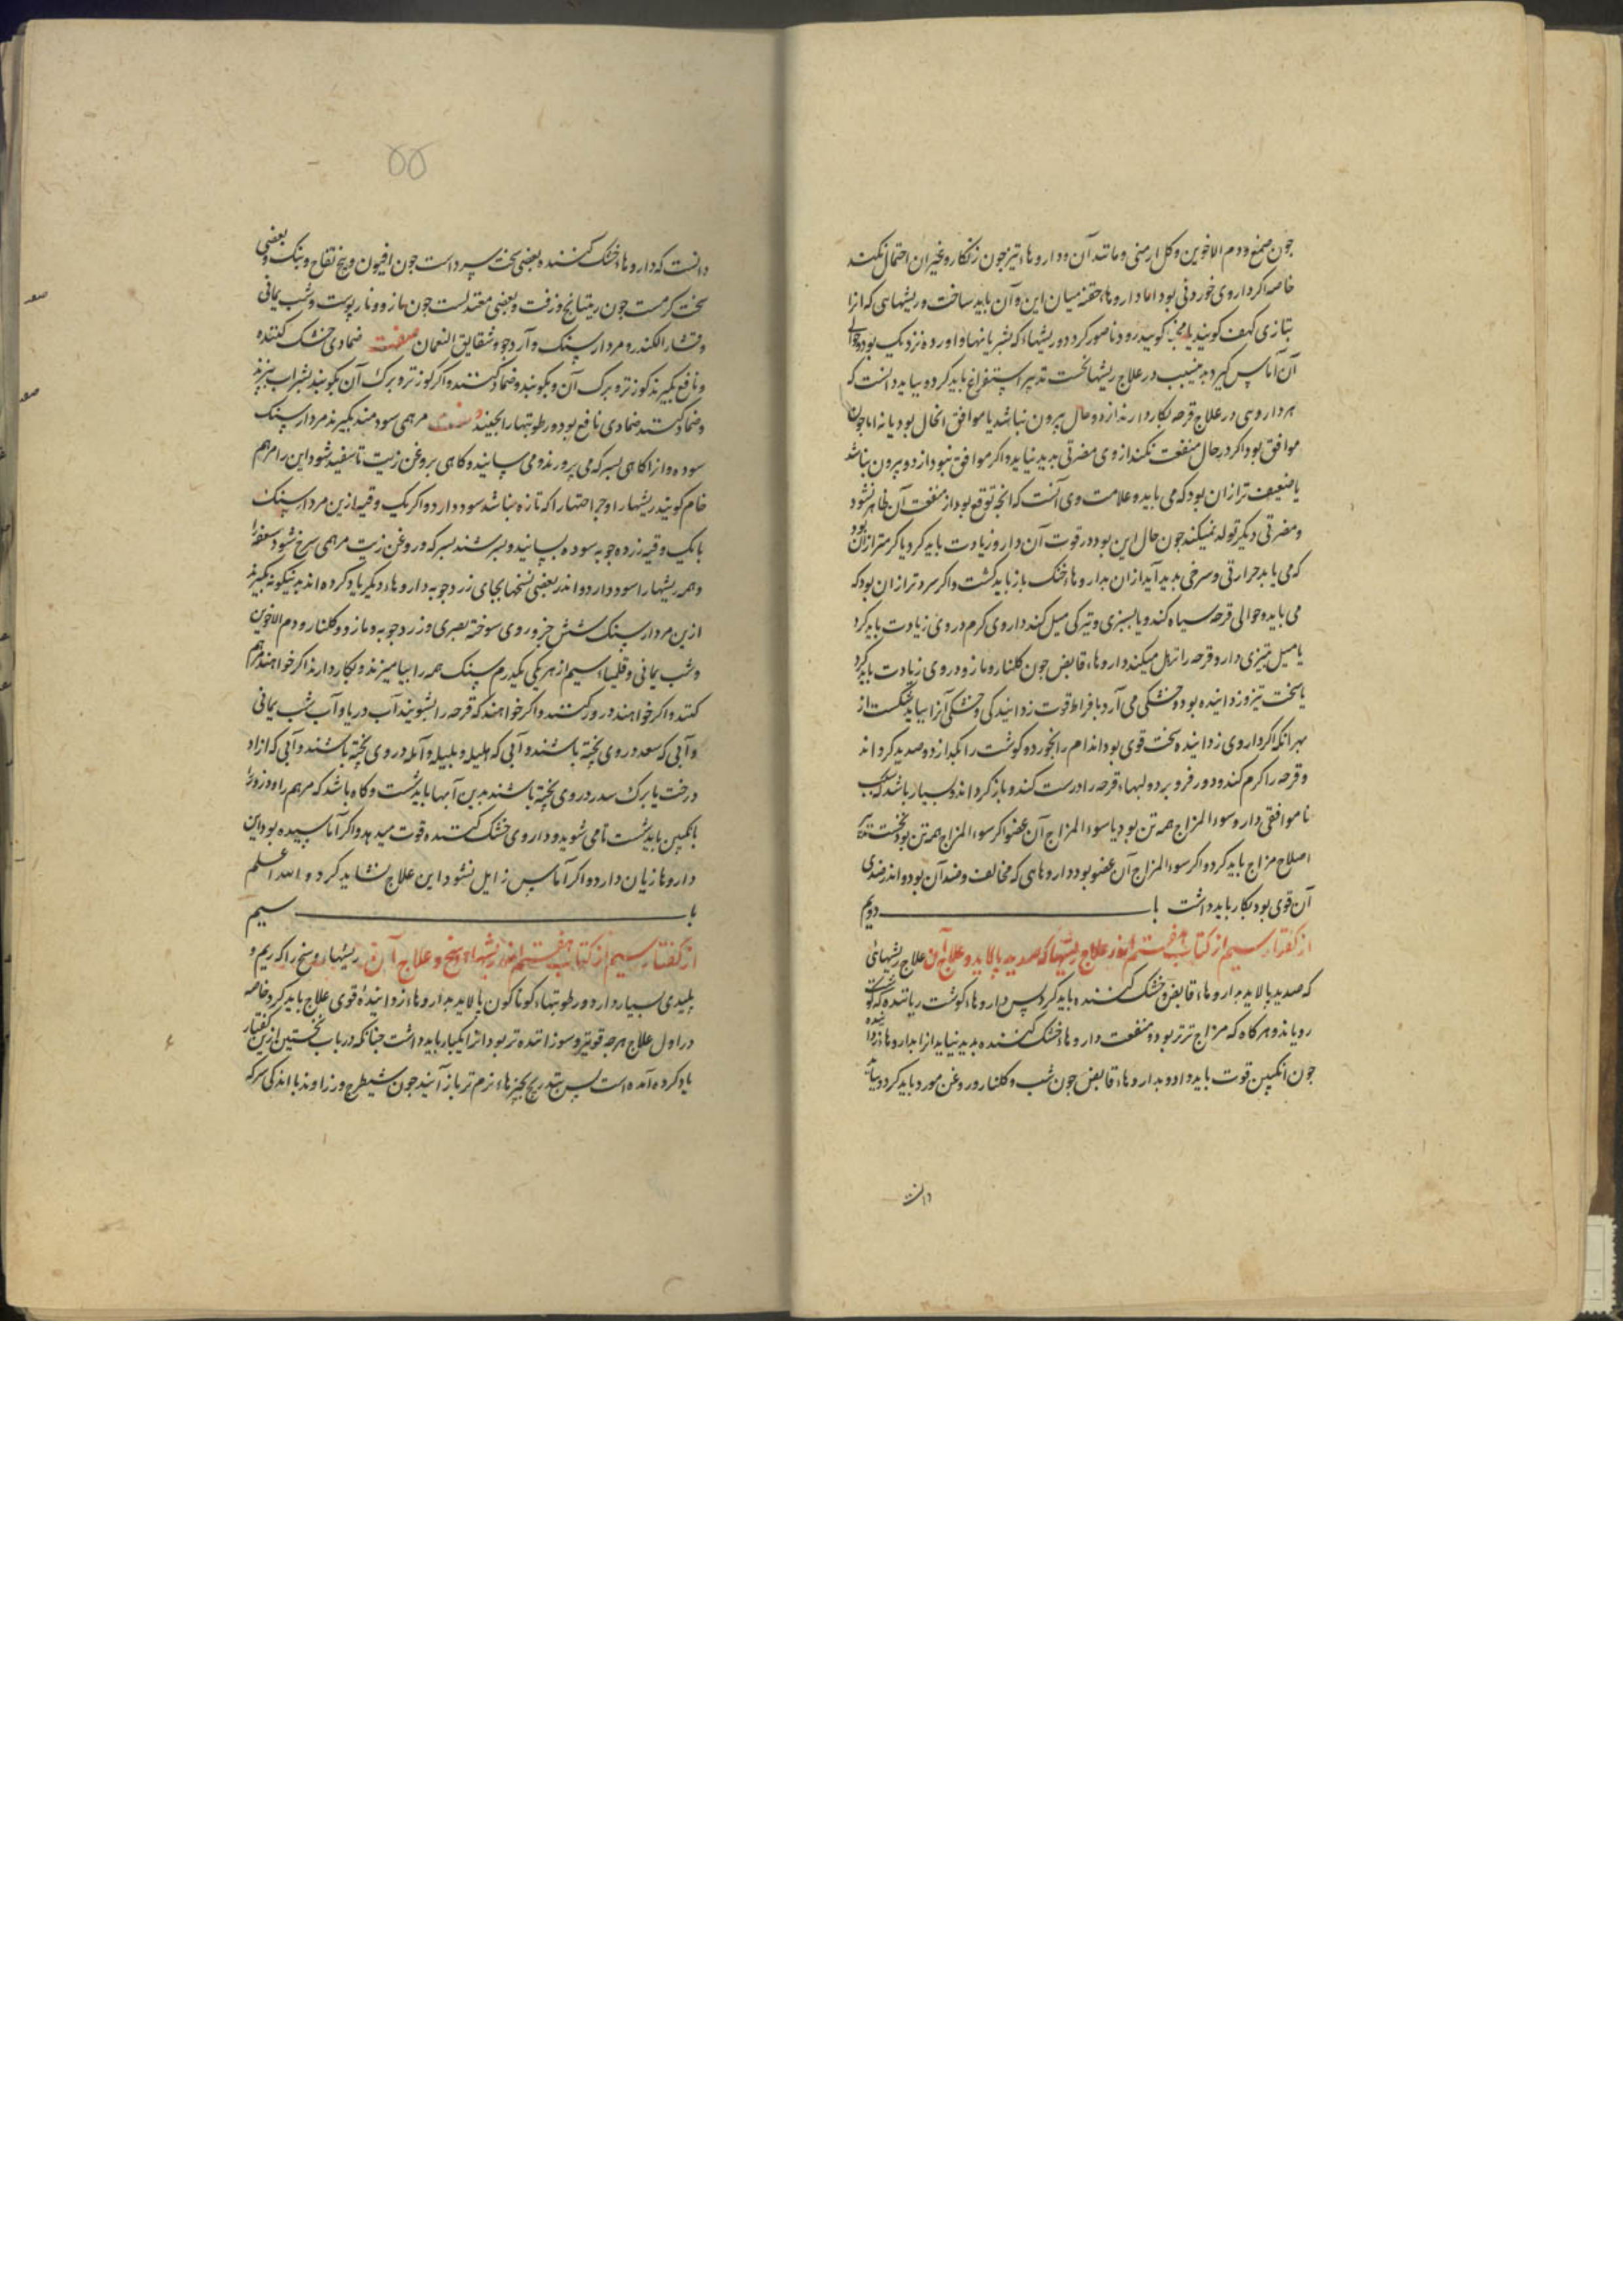 جون صمغ و دم الاخوین و کل ارمنی و مانند آن و داروهاء تیز جون زنکار و غیر ان احتمال نکند
خاصه اکر داروی خوردنی بود اما داروهاء حقنه میان این و آن باید ساخت و ریشهایی که انرا
بتازی کهف کویند یا مخبا کویند زود ناصور کردد و ریشهاء که بشریانها و اورده نزدیک بود و حوالی
آن آماس کیرد بدین سبب در علاج ریشها نخست تدبیر استفراغ باید کرد و بباید دانست که
هر داروی در علاج قرحه بکار دارند از دو حال بیرون نباشد یا موافق انحال بود یا نه اما جون
موافق بود اکر در حال منفعت نکند از وی مضرتی بدید نیاید و اکر موافق نبود از دو بیرون نباشد
یا ضعیف تر از ان بود که می باید و علامت وی آنست که انجه توقع بود از منفعت آن ظاهر نشود
و مضرتی دیکر تولد نمیکند جون حال این بود در قوت آن دارو زیادت باید کرد یا کرمتر از ان بود
که می باید حرارتی و سرخی بدید آید از ان بداروهاء خنک باز باید کشت و اکر سردتر از ان بود که
می باید و حوالی قرحه سیاه کند و یا بسبزی و تیرکی میل کند داروی کرم در وی زیادت باید کرد
یا میل بتیزی دارد و قرحه را ترهل میکند داروهاء قابض جون کلنار و مازو در وی زیادت باید کرد
یا سخت تیز و زداینده بود و خشکی می آرد بافراط قوت زدایندکی و خشکی آنرا بباید شکست از
بهر انکه اکر داروی زداینده سخت قوی بود اندام را بخورد و کوشت را بکدازد و صدید کرداند
و قرحه را کرم کند و دور فرو برد و لبهاء قرحه را درست کند و باز کرداند و بسیار باشد که سبب
ناموافقی دارو سوء المزاج همه تن بود یا سوء المزاج آن عضو اکر سوء المزاج همه تن بود نخست تدبیر
اصلاح مزاج باید کرد و اکر سوء المزاج آن عضو بود داروهایی که مخالف و ضد آن بود و اندر ضدی
آن قوی بود بکار باید داشت باب دویم
از کفتار سیم از کتاب هفتم اندر علاج ریشها که صدید پالاید و علاج آن علاج ریشهای
که صدید پالاید بداروهاء قابض و خشک کننده باید کرد پس داروهاء کوشت رویاننده که کوشت
رویاند و هرکاه که مزاج تر تر بود و منفعت داروهاء خشک کننده بدید نیاید انرا بداروهاء زداینده
جون انکبین قوت باید داد و بداروهاء قابض جون شب و کلنار و روغن مورد باید کرد و بباید
دانست
۵۵
دانست که داروهاء خشک کننده بعضی سخت سرد است جون افیون و بیخ تفاح و بنک و بعضی
سخت کرمست جون ریتیانج و زفت و بعضی معتدلست جون مازو و نارپوست و شب یمانی
و قشار الکندر و مردارسنک و آرد جو و شقایق النعمان صفت ضمادی خشک کننده
و نافع بکیرند کوز تر و برک آن و بکوبند و ضماد کنند و اکر کوز تر و برک آن بکوبند بشراب بپزند
و ضماد کنند ضمادی نافع بود و رطوبتها را بجیند صفت مرهمی سودمند بکیرند مردارسنک
سوده و انرا کاهی بسرکه می پرورند و می سایند و کاهی بروغن زیت تا سفید شود این را مرهم
خام کویند ریشها را و جراحتها را که تازه باشد سود دارد و اکر یک وقیه ازین مردارسنک
با یک وقیه زردجوبه سوده بسایند و بسرشند بسرکه و روغن زیت مرهمی سرخ شود سعفه را
و همه ریشها را سود دارد و اندر بعضی نسخها بجای زردجوبه داروهاء دیکر یاد کرده اند بدینکونه بکیرند
ازین مردارسنک شش جزو روی سوخته بصری و زردجوبه و مازو و کلنار و دم الاخوین
و شب یمانی و قلیمیاء سیم از هر یکی یکدرم سنک همه را بیامیزند و بکار دارند اکر خواهند مرهم
کنند و اکر خواهند ذرور کنند و اکر خواهند که قرحه را بشویند آب دریا و آب شب یمانی
و آبی که سعد در وی پخته باشند و آبی که هلیله و بلیله و آمله در وی پخته باشند و آبی که ازاد
درخت یا برک سدر در وی پخته باشند بدین آبها باید شست و کاه باشد که مرهم را و ذرور را
بانکبین باید شست تا می شوید و داروی خشک کننده قوت میدهد و اکر آماسیده بود این
داروها زیان دارد و اکر آماس زایل نشود این علاج نشاید کرد و الله اعلم
باب سیم
از کفتار سیم از کتاب هفتم اندر ریشهاء وسخ و علاج آن ریشهاء وسخ را که ریم و
پلیدی بسیار دارد و رطوبتهاء کوناکون پالاید بداروهاء زدایندهٔ قوی علاج باید کرد و خاصه
در اول علاج هرجه قویتر و سوزاننده تر بود انرا بکار باید داشت جنانکه در باب نخستین ازین کفتار
یاد کرده آمده است پس بتدریج بجیزهاء نرم تر باز آیند جون شیطرج و زراوند با اندکی سرکه